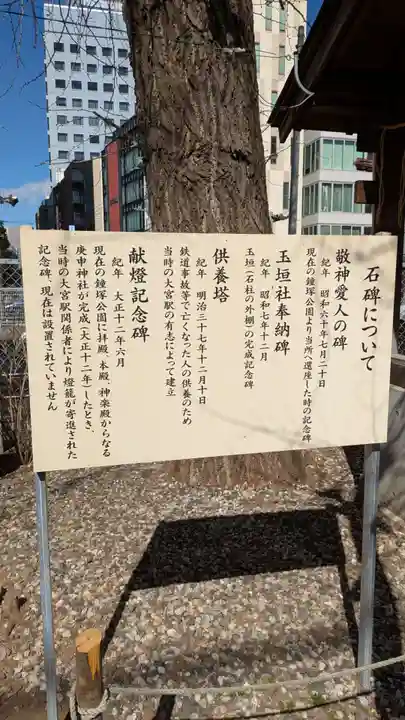 石碑について
敬神愛人の碑
紀年 昭和六十年七月二十日
現在の鐘塚公園より当所へ遷座した時の記念碑
玉垣社奉納碑
紀年 昭和七年十二月
玉垣(石柱の外棚)の完成記念碑
供養塔
紀年 明治三十七年十二月十日
鉄道事故等で亡くなった人の供養のため
当時の大宮駅の有志によって建立
献燈記念碑
紀年 大正十二年六月
現在の鐘塚公園に拝殿、本殿、神楽殿からなる
庚申神社が完成(大正十二年)したとき、
当時の大宮駅関係者により燈籠が寄進された
記念碑、現在は設置されていません